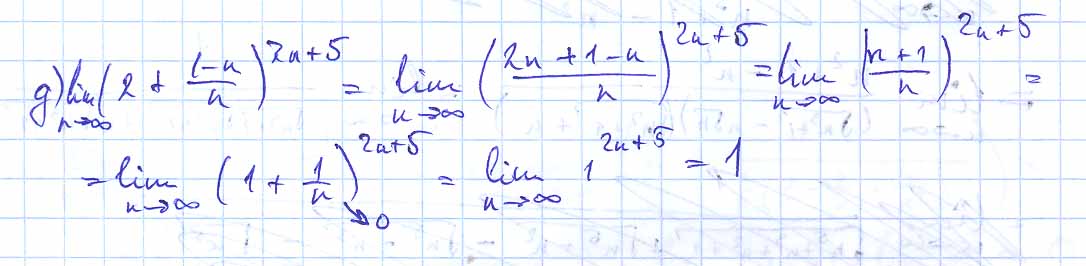 g) lim n→∞ (2 + (1-n)/n)^(2n+5) = lim n→∞ ((2n+1-n)/n)^(2n+5) = lim n→∞ ((n+1)/n)^(2n+5) =
= lim n→∞ (1 + 1/n)^(2n+5) = lim n→∞ 1^(2n+5) = 1
→0